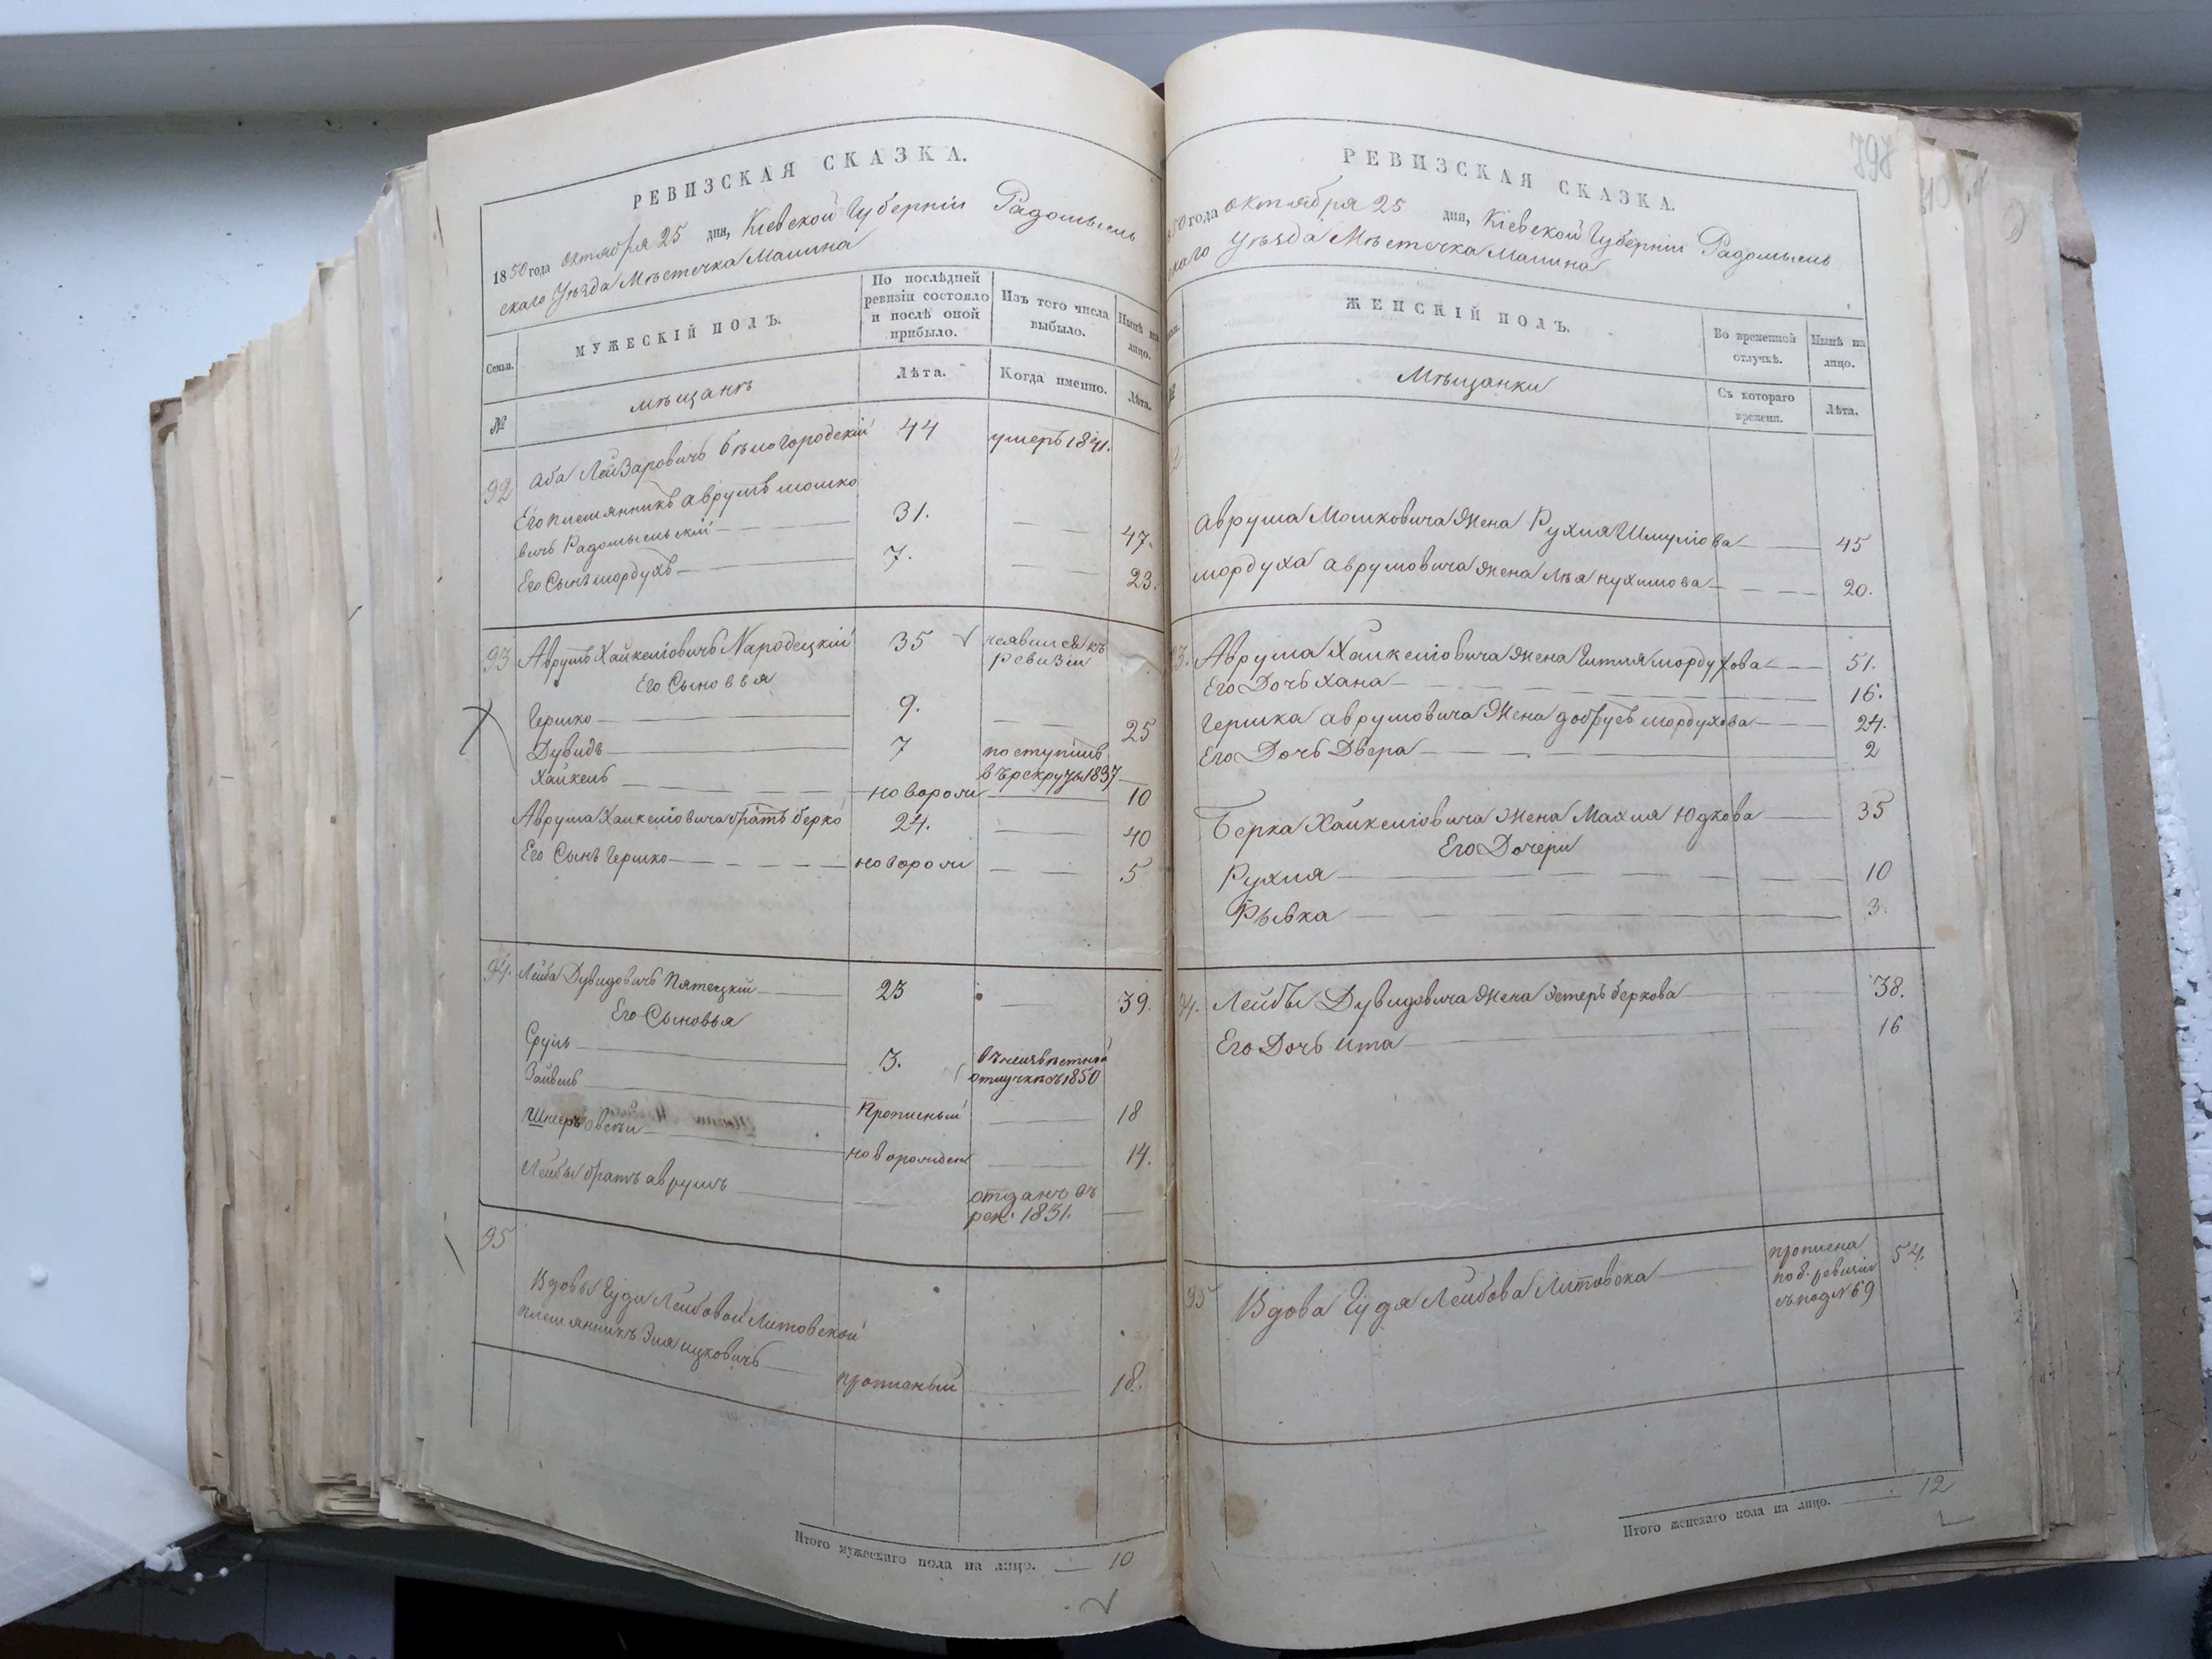 РЕВИЗСКАЯ СКАЗКА.
1850 года октября 25 дня, Кіевской Губерніи Радомысль
скаго Уѣзда Мѣстечка Малина
Семьи.
МУЖЕСКІЙ ПОЛЪ.
По послѣдней ревизіи состояло и послѣ оной прибыло.
Изъ того числа выбыло.
Нынѣ на лицо.
№
мѣщанѣ
Лѣта.
Когда именно.
Лѣта.
92 Аба Лейзаровичъ Бѣлогородскій 44 умеръ 1841.
Его племянникъ Аврумъ Мошко
вичъ Радомысльскій 31. 47.
Его Сынъ Мордухъ 7. 23.
93 Аврумъ Хайкелiовичъ Народецкій 35 неявился къ
ревизіи
Его Сыновья
Гершко 9. 25
Дувидъ 7 поступилъ
въ рекруты 1837
Хайкель новорож 10
Аврума Хайкелiовича братъ Берко 24. 40
Его Сынъ Гершко новорож 5
94. Лейба Дувидовичъ Пятецкій 23 39.
Его Сыновья
Сруль 3. въ неизвѣстной
отлучкѣ съ 1850
Зайвель прописный 18
новорожден 14.
Лейбы братъ Аврумъ отданъ въ
рек. 1831.
95
Вдовы Гуди Лейбовой Литовской
племянникъ Эля Ицковичъ
прописный 18.
Итого мужескаго пола на лицо. 10
РЕВИЗСКАЯ СКАЗКА.
50 года октября 25 дня, Кіевской Губерніи Радомысль
скаго Уѣзда Мѣстечка Малина
ЖЕНСКІЙ ПОЛЪ.
Во временной отлучкѣ.
Нынѣ на лицо.
Мѣщанки
Съ котораго времени.
Лѣта.
Аврума Мошковича Жена Рухля Шмулiова 45
Мордуха Аврумовича Жена Лѣя Нухимова 20.
93. Аврума Хайкелiовича Жена Гитля Мордухова 51.
Его Дочь Хана 16.
Гершка Аврумовича Жена Добрусь Мордухова 24.
Его Дочь Двера 2
Берка Хайкелiовича Жена Махля Юдкова 35
Его Дочери
Рухля 10
Рывка 3.
94. Лейбы Дувидовича Жена Эстеръ Беркова 38.
Его Дочь Ита 16
95 Вдова Гудя Лейбова Литовска прописна 54.
по 8. ревизіи
съ под № 69
Итого женскаго пола на лицо. 12